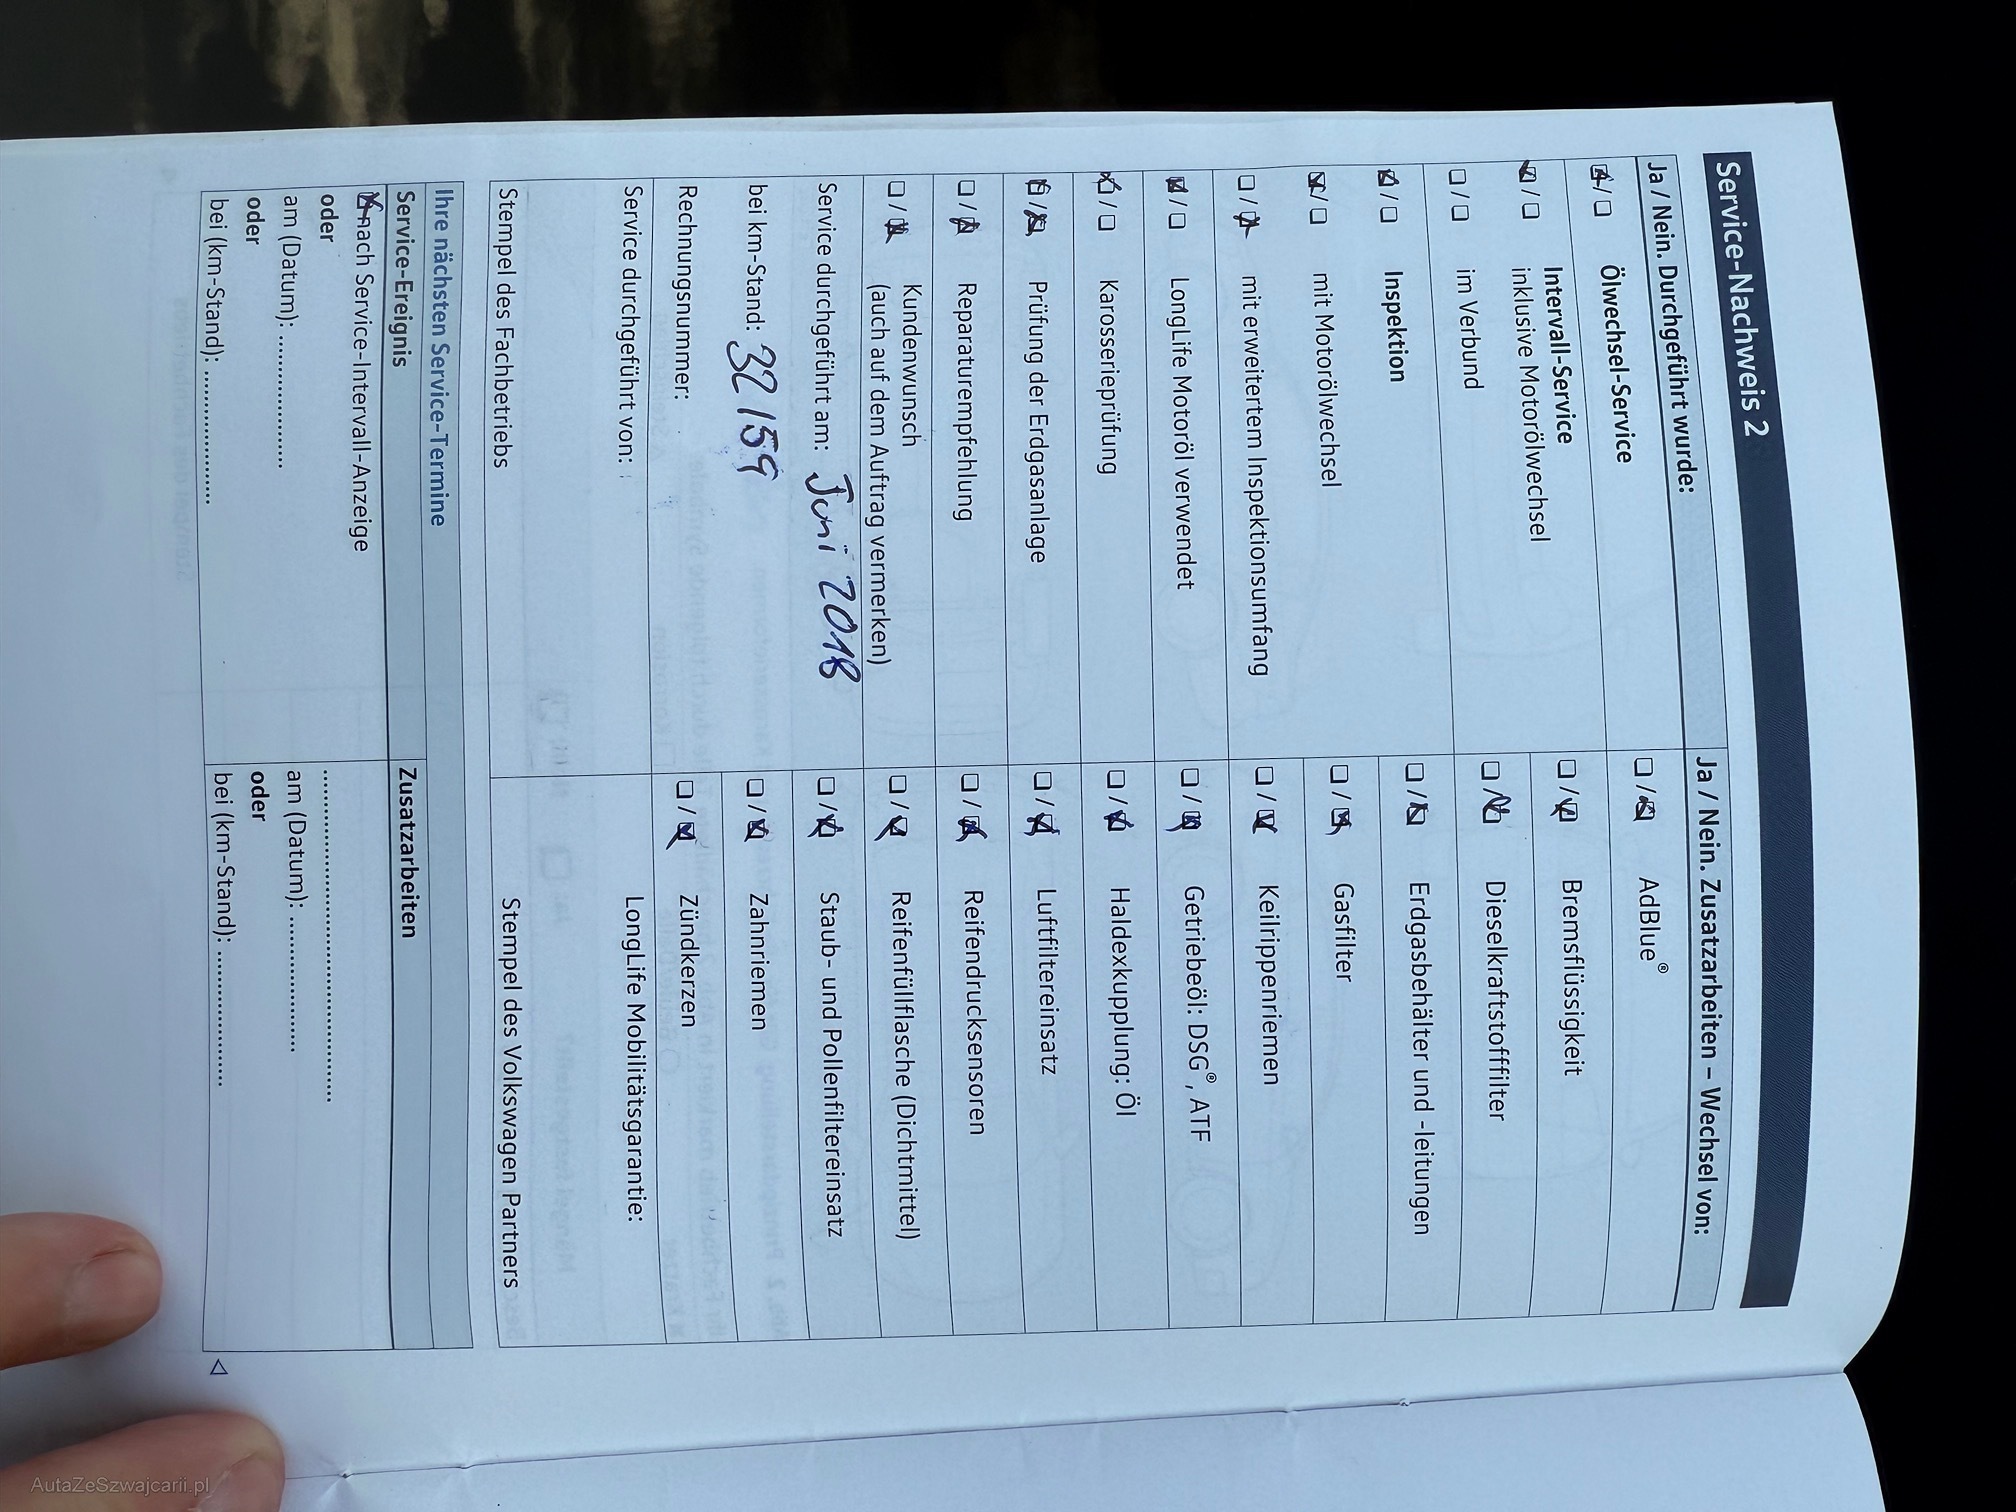 Service-Nachweis 2
Ja / Nein. Durchgeführt wurde:
Ölwechsel-Service
Intervall-Service
inklusive Motorölwechsel
im Verbund
Inspektion
mit Motorölwechsel
mit erweitertem Inspektionsumfang
LongLife Motoröl verwendet
Karosserieprüfung
Prüfung der Erdgasanlage
Reparaturempfehlung
Kundenwunsch
(auch auf dem Auftrag vermerken)
Service durchgeführt am: Juni 2018
bei km-Stand: 32159
Rechnungsnummer:
Service durchgeführt von:
Stempel des Fachbetriebs
Ja / Nein. Zusatzarbeiten – Wechsel von:
AdBlue®
Bremsflüssigkeit
Dieselkraftstofffilter
Erdgasbehälter und -leitungen
Gasfilter
Keilrippenriemen
Getriebeöl: DSG®, ATF
Haldexkupplung: Öl
Luftfiltereinsatz
Reifendrucksensoren
Reifenfüllflasche (Dichtmittel)
Staub- und Pollenfiltereinsatz
Zahnriemen
Zündkerzen
LongLife Mobilitätsgarantie:
Stempel des Volkswagen Partners
Ihre nächsten Service-Termine
Service-Ereignis
nach Service-Intervall-Anzeige
oder
am (Datum): ....................
oder
bei (km-Stand): ....................
Zusatzarbeiten
..................................................
am (Datum): ....................
oder
bei (km-Stand): ....................
AutaZeSzwajcarii.pl